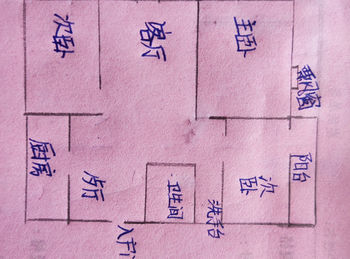 次卧
客厅
主卧
飘窗
厨房
歺厅
卫生间
洗手台
次卧
阳台
入户门